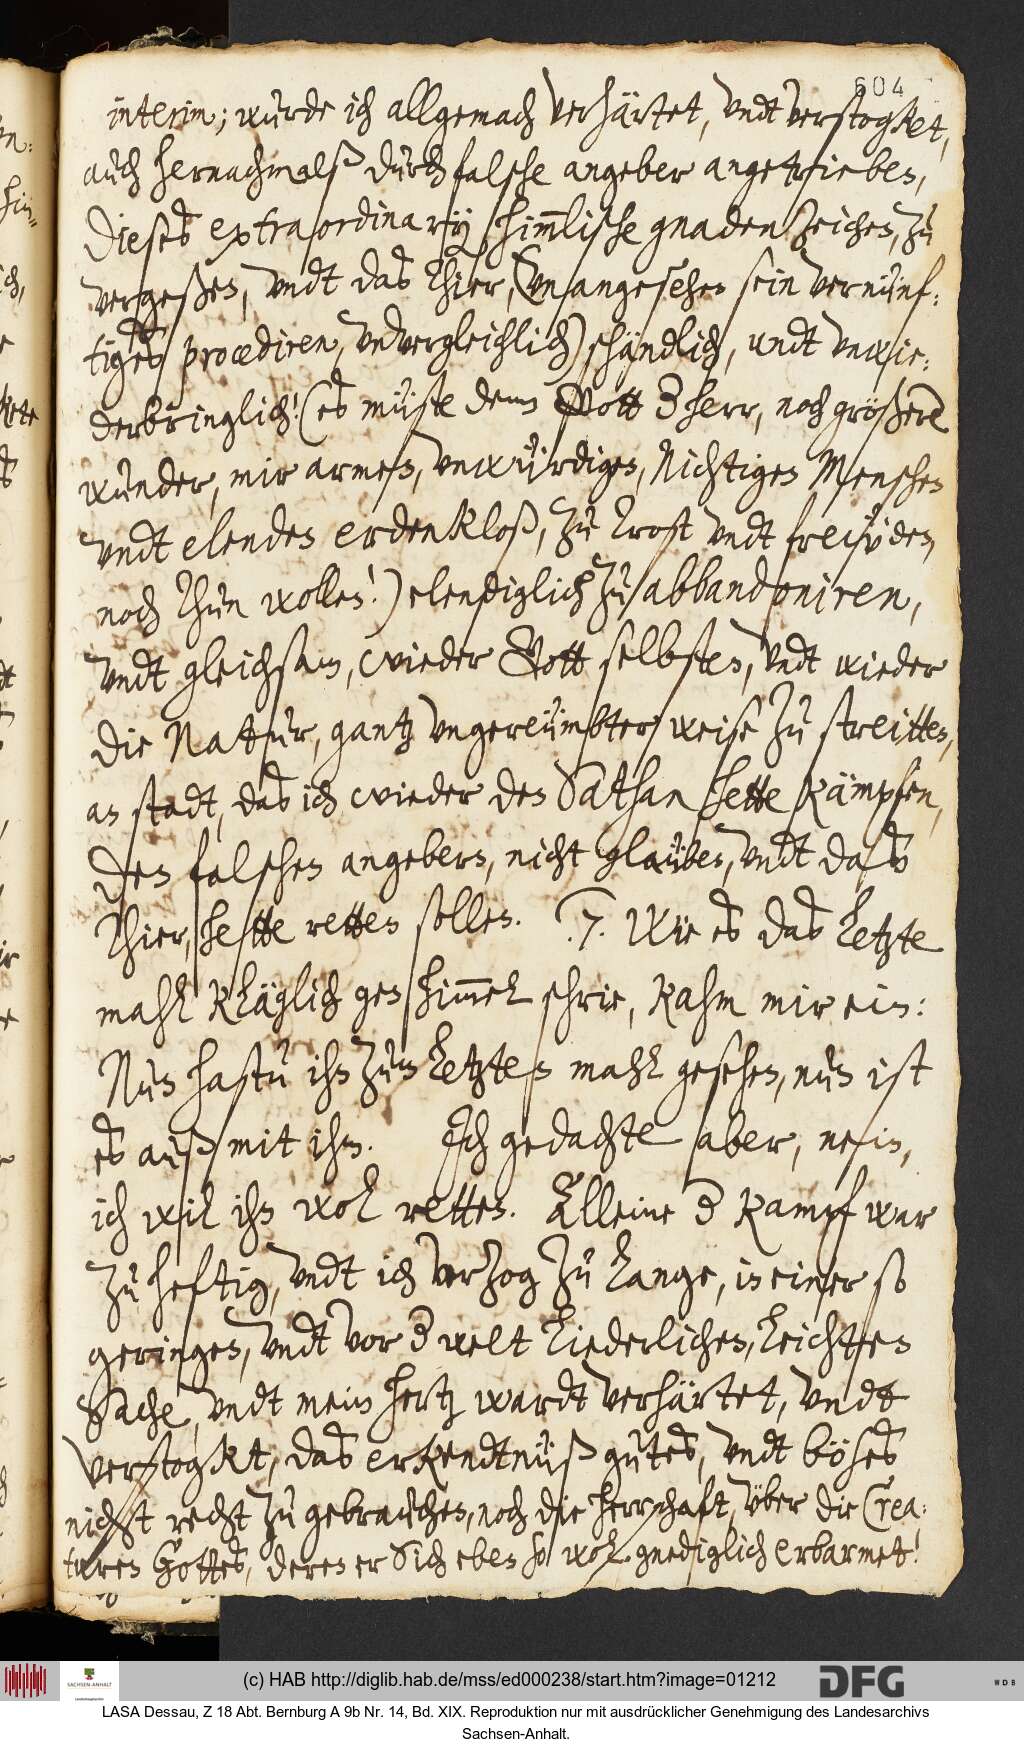 604
interim; wurde ich allgemach verhärtet, vndt verstogket,
auch hernachmalß durch falsche angeber angetrieben,
dieses extraordinarij himlische gnaden zeichen, zu
vergeßen, vndt das Thier, (vnangesehen sein vernünf-
tiges procediren, vnvergleichlich) schändlich, undt vnwie-
derbringlich! (es müste denn Gott der herr, noch größere
wunder, mir armen, vnwürdigen, Nichtigen Menschen
vndt elenden erdenkloß, zu Trost vndt freẅden,
noch Thun wollen!) elendiglich zu abbandoniren,
vndt gleichsam, wieder Gott selbsten, vndt wieder
die Natur, gantz vngereümbter weise zu streitten,
an stadt, das ich wieder den Sathan hette kämpfen,
den falschen angebern, nicht glauben, vndt das
Thier, hette retten sollen. .7. Wie es das Letzte
mahl kläglich gen himmel schrie, kahm mir ein:
Nun hastu ihn zum Letzten mahl gesehen, nun ist
es auß mit ihm. Ich gedachte aber, nein,
ich wil ihn wol retten. Alleine der kampf war
zu heftig, vndt ich verzog zu Lange, in einer so
geringen, vndt vor der welt Liederlichen, Leichten
Sache, vndt mein hertz wardt verhärtet, vndt
verstogkt, das erkendtnüß gutes, vndt böses
nicht recht zu gebrauchen, noch die herrschaft, vber die Crea-
turen Gottes, deren er Sich eben so wol gnediglich erbarmet!
(c) HAB http://diglib.hab.de/mss/ed000238/start.htm?image=01212
SACHSEN-ANHALT
DFG
WDB
LASA Dessau, Z 18 Abt. Bernburg A 9b Nr. 14, Bd. XIX. Reproduktion nur mit ausdrücklicher Genehmigung des Landesarchivs
Sachsen-Anhalt.